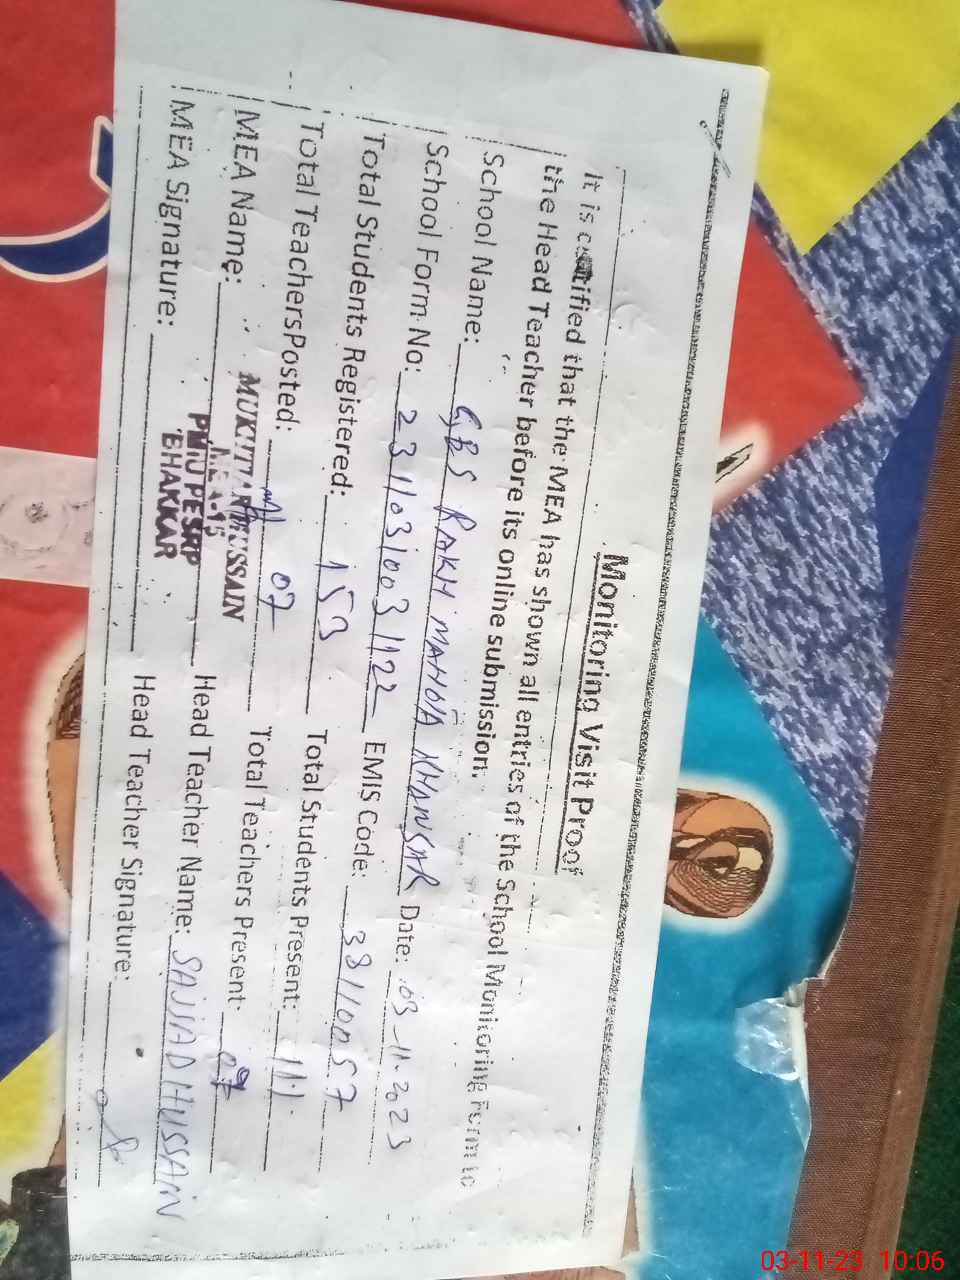 Monitoring Visit Proof
It is certified that the MEA has shown all entries of the School Monitoring Form to
the Head Teacher before its online submission.
School Name: GBS RAKH MAHOA KHANSAR Date: 03-11-2023
School Form No: 23110310031122 EMIS Code: 38110057
Total Students Registered: 153 Total Students Present: 111
Total Teachers Posted: 07 Total Teachers Present 07
MEA Name: MUKHTAR HUSSAIN Head Teacher Name: SAJJAD HUSSAIN
MEA-15
PMIU PESRP
BHAKKAR
MEA Signature: Head Teacher Signature:
03-11-23 10:06